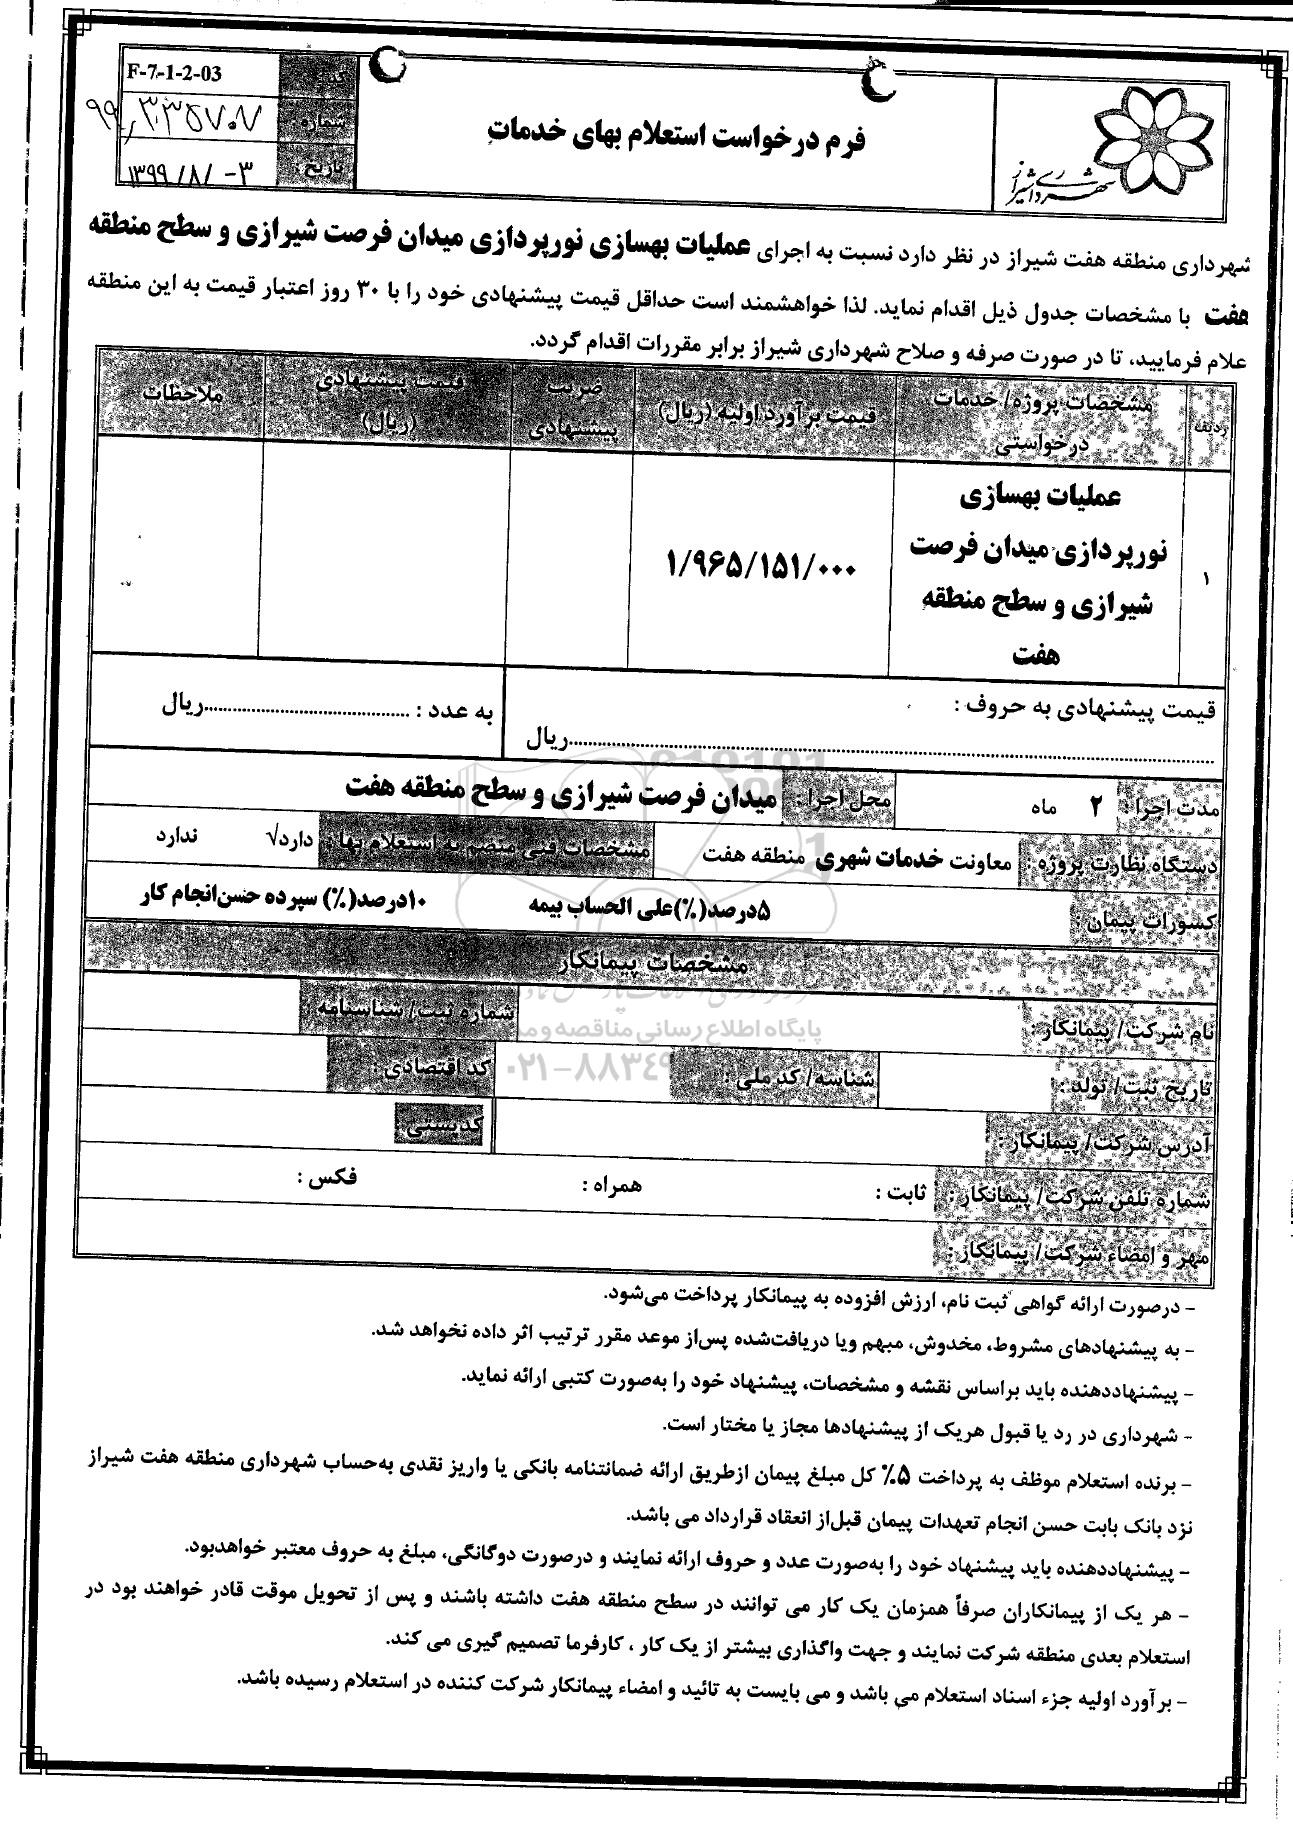 شهرداری شیراز
فرم درخواست استعلام بهای خدمات
کد : F-7-1-2-03
شماره : ۹۹/۳۰۳۵۷۰۷
تاریخ : ۱۳۹۹/۸/-۳
شهرداری منطقه هفت شیراز در نظر دارد نسبت به اجرای عملیات بهسازی نورپردازی میدان فرصت شیرازی و سطح منطقه
هفت با مشخصات جدول ذیل اقدام نماید. لذا خواهشمند است حداقل قیمت پیشنهادی خود را با ۳۰ روز اعتبار قیمت به این منطقه
علام فرمایید، تا در صورت صرفه و صلاح شهرداری شیراز برابر مقررات اقدام گردد.
ردیف مشخصات پروژه/ خدمات درخواستی قیمت برآورد اولیه (ریال) ضریب پیشنهادی قیمت پیشنهادی (ریال) ملاحظات
۱ عملیات بهسازی
نورپردازی میدان فرصت
شیرازی و سطح منطقه
هفت
۱/۹۶۵/۱۵۱/۰۰۰
قیمت پیشنهادی به حروف :
..........ریال
به عدد : ..........ریال
مدت اجرا : ۲ ماه محل اجرا : میدان فرصت شیرازی و سطح منطقه هفت
دستگاه نظارت پروژه : معاونت خدمات شهری منطقه هفت مشخصات فنی منضم به استعلام بها : دارد√ ندارد
کسورات پیمان : ۵درصد(%)علی الحساب بیمه ۱۰درصد(%) سپرده حسن‌انجام کار
مشخصات پیمانکار
نام شرکت/ پیمانکار : شماره ثبت/ شناسنامه
تاریخ ثبت/ تولد : شناسه/ کد ملی : کد اقتصادی :
آدرس شرکت/ پیمانکار : کدپستی :
شماره تلفن شرکت/ پیمانکار : ثابت : همراه : فکس :
مهر و امضاء شرکت/ پیمانکار :
پایگاه اطلاع رسانی مناقصه و
۰۲۱-۸۸۳۴۹
- درصورت ارائه گواهی ثبت نام، ارزش افزوده به پیمانکار پرداخت می‌شود.
- به پیشنهادهای مشروط، مخدوش، مبهم ویا دریافت‌شده پس‌از موعد مقرر ترتیب اثر داده نخواهد شد.
- پیشنهاددهنده باید براساس نقشه و مشخصات، پیشنهاد خود را به‌صورت کتبی ارائه نماید.
- شهرداری در رد یا قبول هریک از پیشنهادها مجاز یا مختار است.
- برنده استعلام موظف به پرداخت ۵٪ کل مبلغ پیمان ازطریق ارائه ضمانتنامه بانکی یا واریز نقدی به‌حساب شهرداری منطقه هفت شیراز
نزد بانک بابت حسن انجام تعهدات پیمان قبل‌از انعقاد قرارداد می باشد.
- پیشنهاددهنده باید پیشنهاد خود را به‌صورت عدد و حروف ارائه نمایند و درصورت دوگانگی، مبلغ به حروف معتبر خواهدبود.
- هر یک از پیمانکاران صرفاً همزمان یک کار می توانند در سطح منطقه هفت داشته باشند و پس از تحویل موقت قادر خواهند بود در
استعلام بعدی منطقه شرکت نمایند و جهت واگذاری بیشتر از یک کار ، کارفرما تصمیم گیری می کند.
- برآورد اولیه جزء اسناد استعلام می باشد و می بایست به تائید و امضاء پیمانکار شرکت کننده در استعلام رسیده باشد.